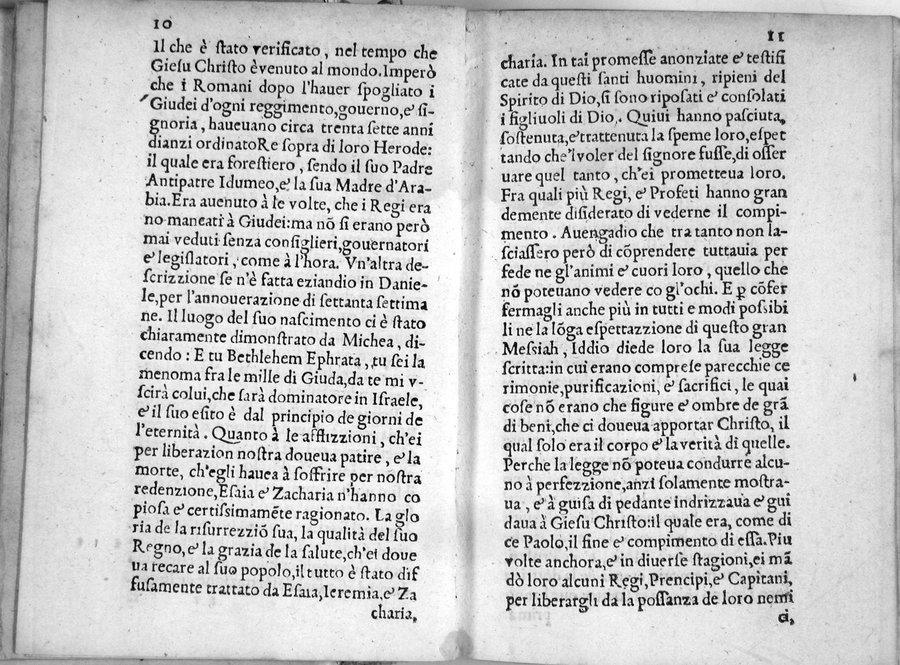 10
Il che è ſtato verificato, nel tempo che
Gieſu Chriſto è venuto al mondo. Imperò
che i Romani dopo l'hauer ſpogliato i
Giudei d'ogni reggimento, gouerno, e' ſi-
gnoria, haueuano circa trenta ſette anni
dianzi ordinato Re ſopra di loro Herode:
il quale era foreſtiero, ſendo il ſuo Padre
Antipatre Idumeo, e' la ſua Madre d'Ara-
bia. Era auenuto à le volte, che i Regi era
no mancati à Giudei: ma nõ ſi erano però
mai veduti ſenza conſiglieri, gouernatori
e' legiſlatori, come à l'hora. Vn'altra de-
ſcrizzione ſe n'è fatta eziandio in Danie-
le, per l'annouerazione di ſettanta ſettima
ne. Il luogo del ſuo naſcimento ci è ſtato
chiaramente dimonſtrato da Michea, di-
cendo: E tu Bethlehem Ephrata, tu ſei la
menoma fra le mille di Giuda, da te mi v-
ſcirà colui, che ſarà dominatore in Iſraele,
e' il ſuo eſito è dal principio de giorni de
l'eternità. Quanto à le afflizzioni, ch'ei
per liberazion noſtra doueua patire, e' la
morte, ch'egli hauea à ſoffrire per noſtra
redenzione, Eſaia e' Zacharia n'hanno co
pioſa e' certiſsimamẽte ragionato. La glo
ria de la riſurrezziõ ſua, la qualità del ſuo
Regno, e' la grazia de la ſalute, ch'ei doue
ua recare al ſuo popolo, il tutto è ſtato dif
fuſamente trattato da Eſaia, Ieremia, e' Za
charia,
11
charia. In tai promeſſe anonziate e' teſtifi
cate da queſti ſanti huomini, ripieni del
Spirito di Dio, ſi ſono ripoſati e' conſolati
i figliuoli di Dio. Quiui hanno paſciuta,
ſoſtenuta, e' trattenuta la ſpeme loro, eſpet
tando che'l voler del ſignore fuſſe, di oſſer
uare quel tanto, ch'ei prometteua loro.
Fra quali più Regi, e' Profeti hanno gran
demente diſiderato di vederne il compi-
mento. Auengadio che tra tanto non la-
ſciaſſero però di cõprendere tuttauia per
fede ne gl'animi e' cuori loro, quello che
nõ poteuano vedere co gl'ochi. E ꝑ cõfer
fermagli anche più in tutti e modi poſsibi
li ne la lõga eſpettazzione di queſto gran
Meſsiah, Iddio diede loro la ſua legge
ſcritta: in cui erano compreſe parecchie ce
rimonie, purificazioni, e' ſacrifici, le quai
coſe nõ erano che figure e' ombre de grã
di beni, che ci doueua apportar Chriſto, il
qual ſolo era il corpo e' la verità di quelle.
Perche la legge nõ poteua condurre alcu-
no à perfezzione, anzi ſolamente moſtra-
ua, e' à guiſa di pedante indrizzaua e' gui
daua à Gieſu Chriſto: il quale era, come di
ce Paolo, il fine e' compimento di eſſa. Piu
volte anchora, e' in diuerſe ſtagioni, ei mã
dò loro alcuni Regi, Prencipi, e' Capitani,
per liberargli da la poſſanza de loro nemi
ci,